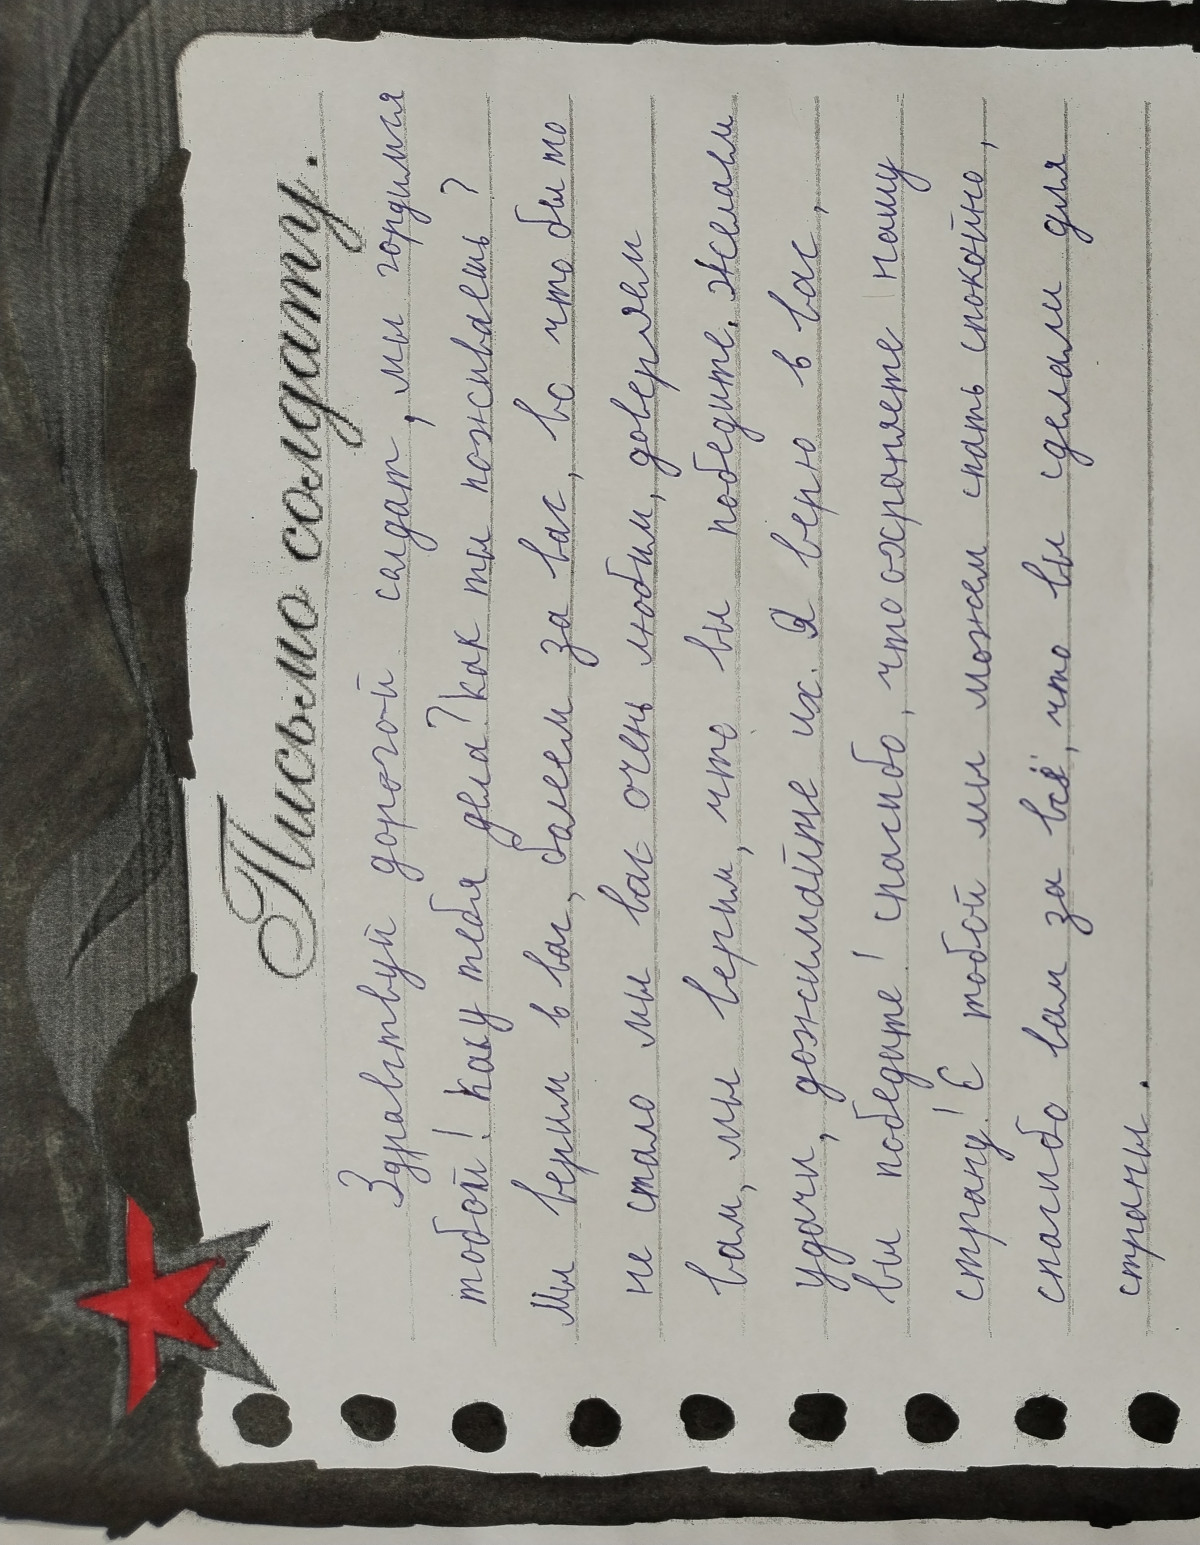 Письмо солдату.
Здравствуй дорогой салдат, мы гордимся
тобой! Как у тебя дела? как ты поживаешь?
Мы верим в вас, балеем за вас, во что бы то
не стало мы вас очень любим, доверяем
вам, мы верим, что вы победите. Желаем
удачи, дожимайте их. Я верю в вас,
вы победите! спасибо, что охраняете нашу
страну! С тобой мы можем спать спокойно,
спасибо вам за всё, что вы сделали для
страны.